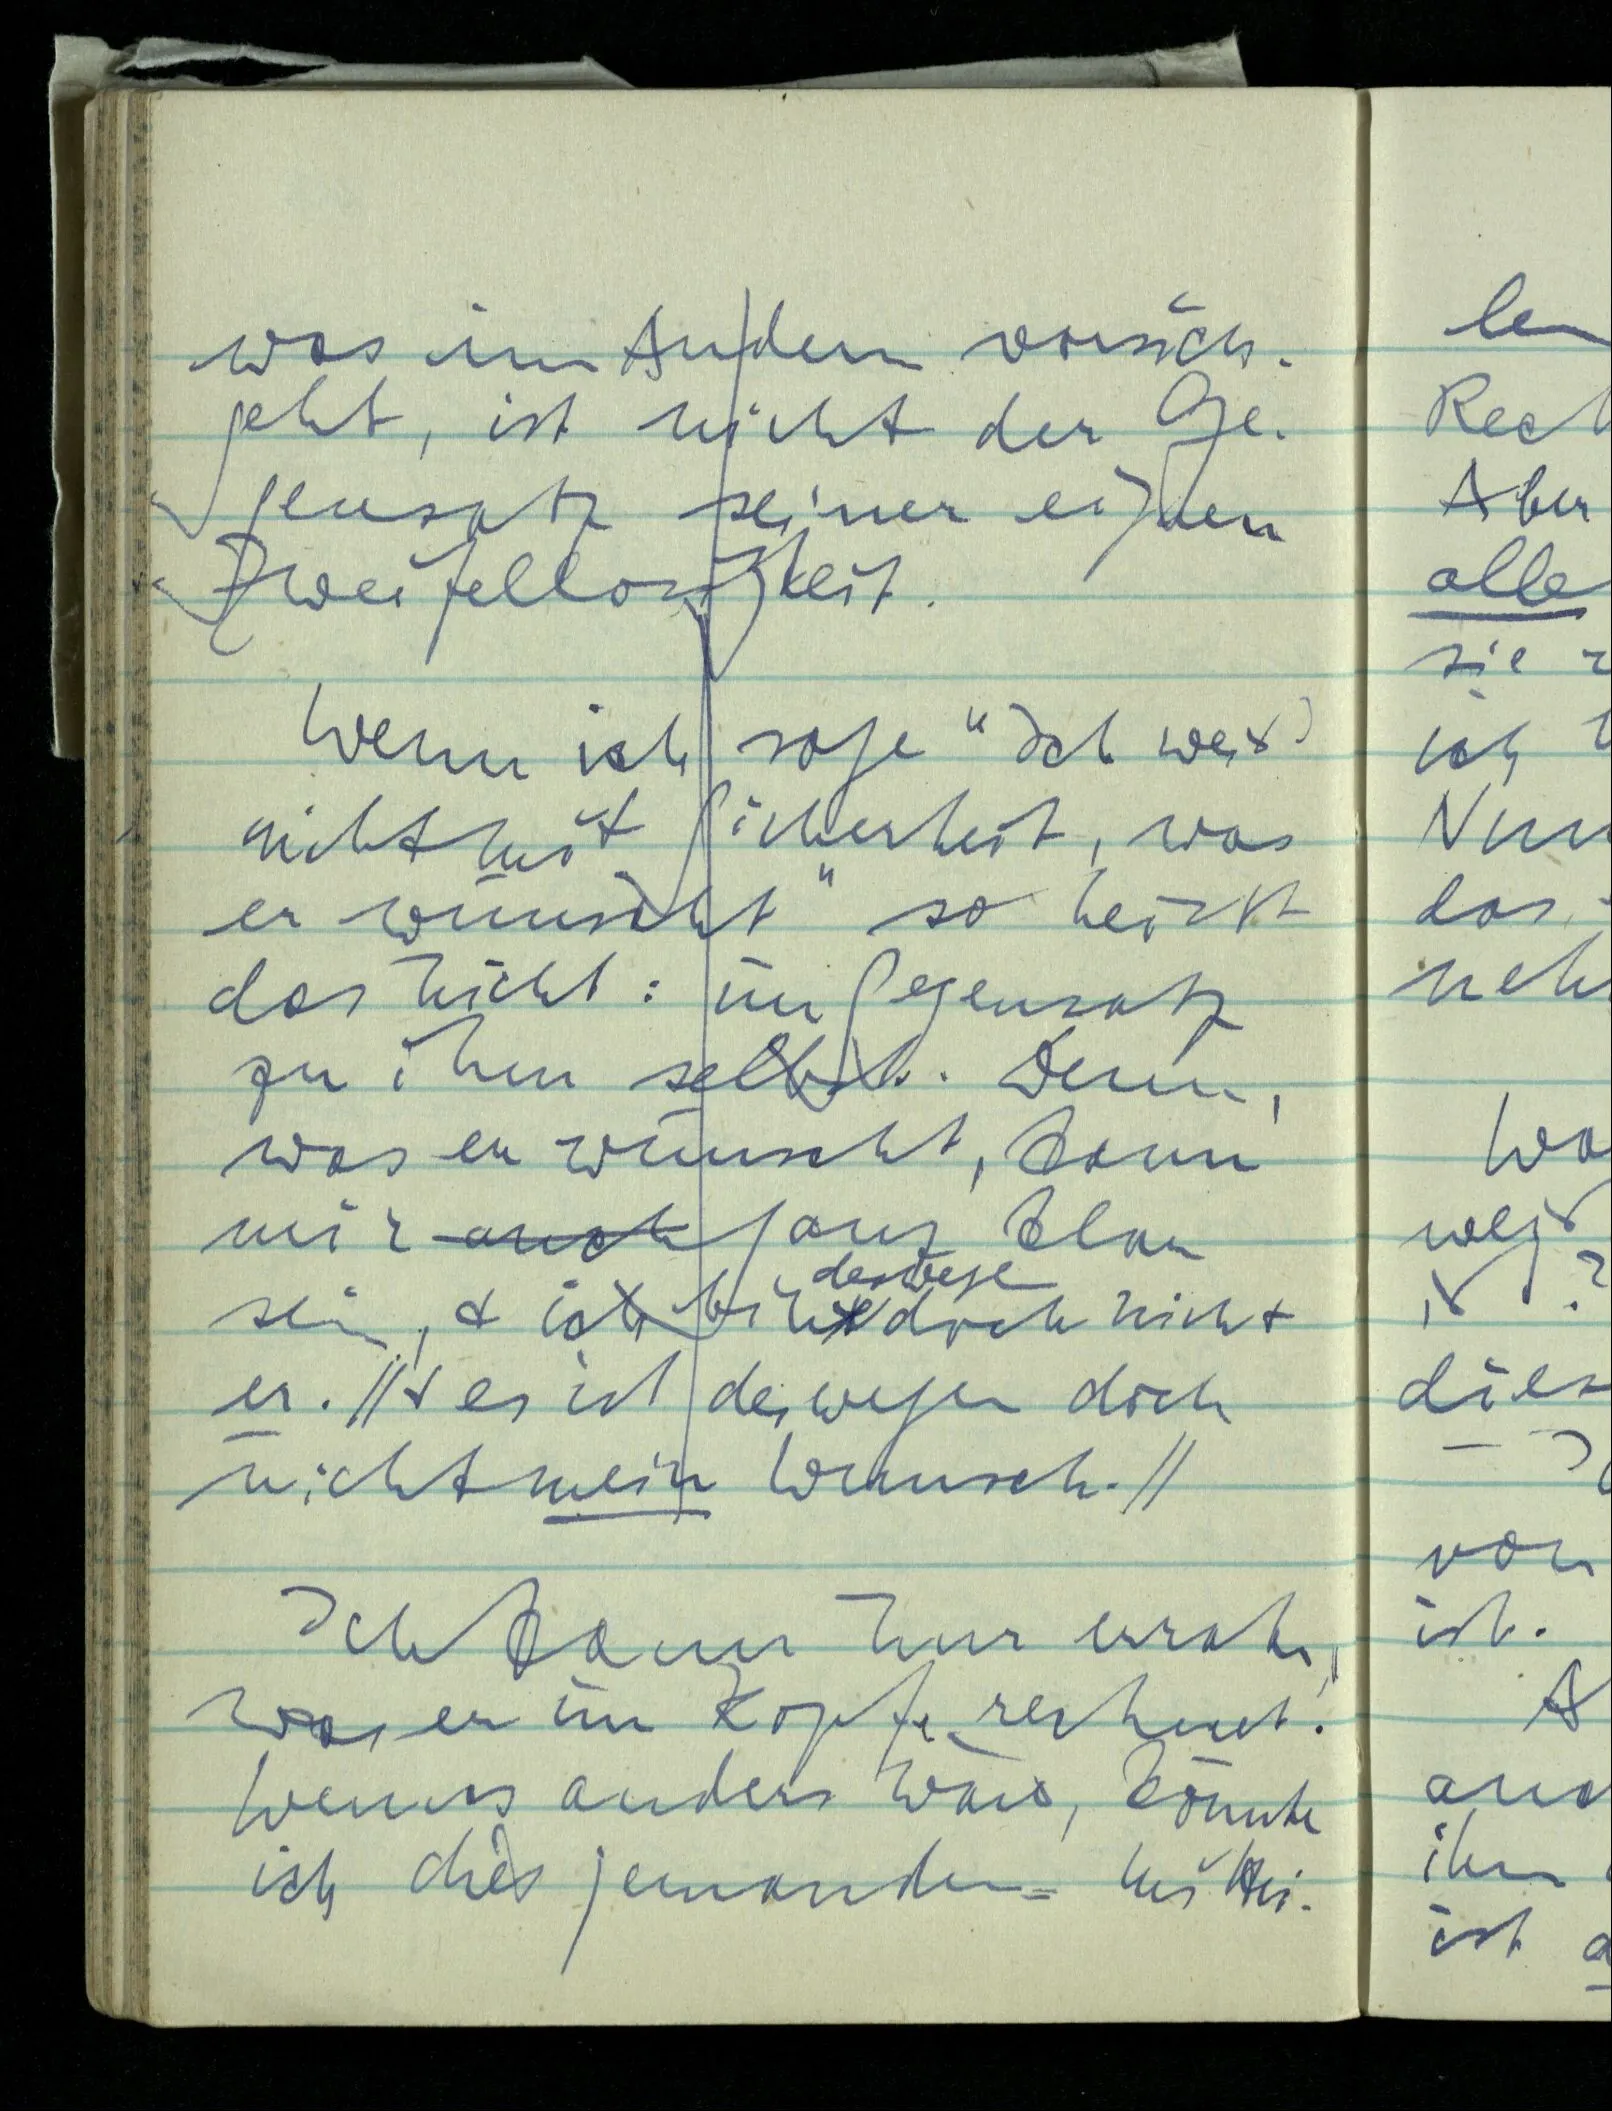 was im Andern vorsich-
geht, ist nicht der Ge-
gensatz seiner eignen
Zweifellosigkeit.
Wenn ich sage "Ich weiß
nicht mit Sicherheit, was
er wünscht" so heißt
das nicht: im Gegensatz
zu ihm selbst. Denn,
was er wünscht, kann
mir auch ganz klar
deswegen
sein, & ich bin doch nicht
er. // & es ist deswegen doch
nicht mein Wunsch. //
Ich kann nur erraten,
was er im Kopfe rechnet.
Wenns anders wäre, könnte
ich dies jemandem mittei-
Aber
alle
sie
ich
das
dies
von
ist.
ist